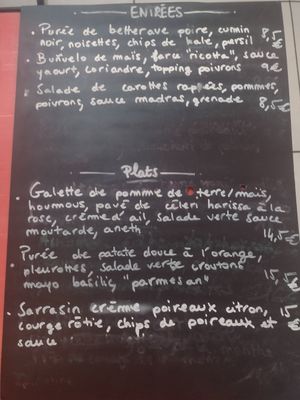 ENTRÉES
. Purée de betterave poire, cumin 8,5
noir, noisettes, chips de kale, persil €
. Buñuelo de maïs, farce "ricotta", sauce
yaourt, coriandre, topping poivrons 9€
. Salade de carottes rapées, pommes,
poivrons, sauce madras, grenade 8,5€
Plats
. Galette de pomme de terre/maïs,
houmous, pavé de céleri harissa à la
rose, crème d'ail, salade verte sauce
moutarde, aneth 14,5€
. Purée de patate douce à l'orange,
pleurottes, salade verte croutons
mayo basilic, parmesan" 15,5€
. Sarrasin crème poireaux citron, 15
courge rôtie, chips de poireaux et €
sauce